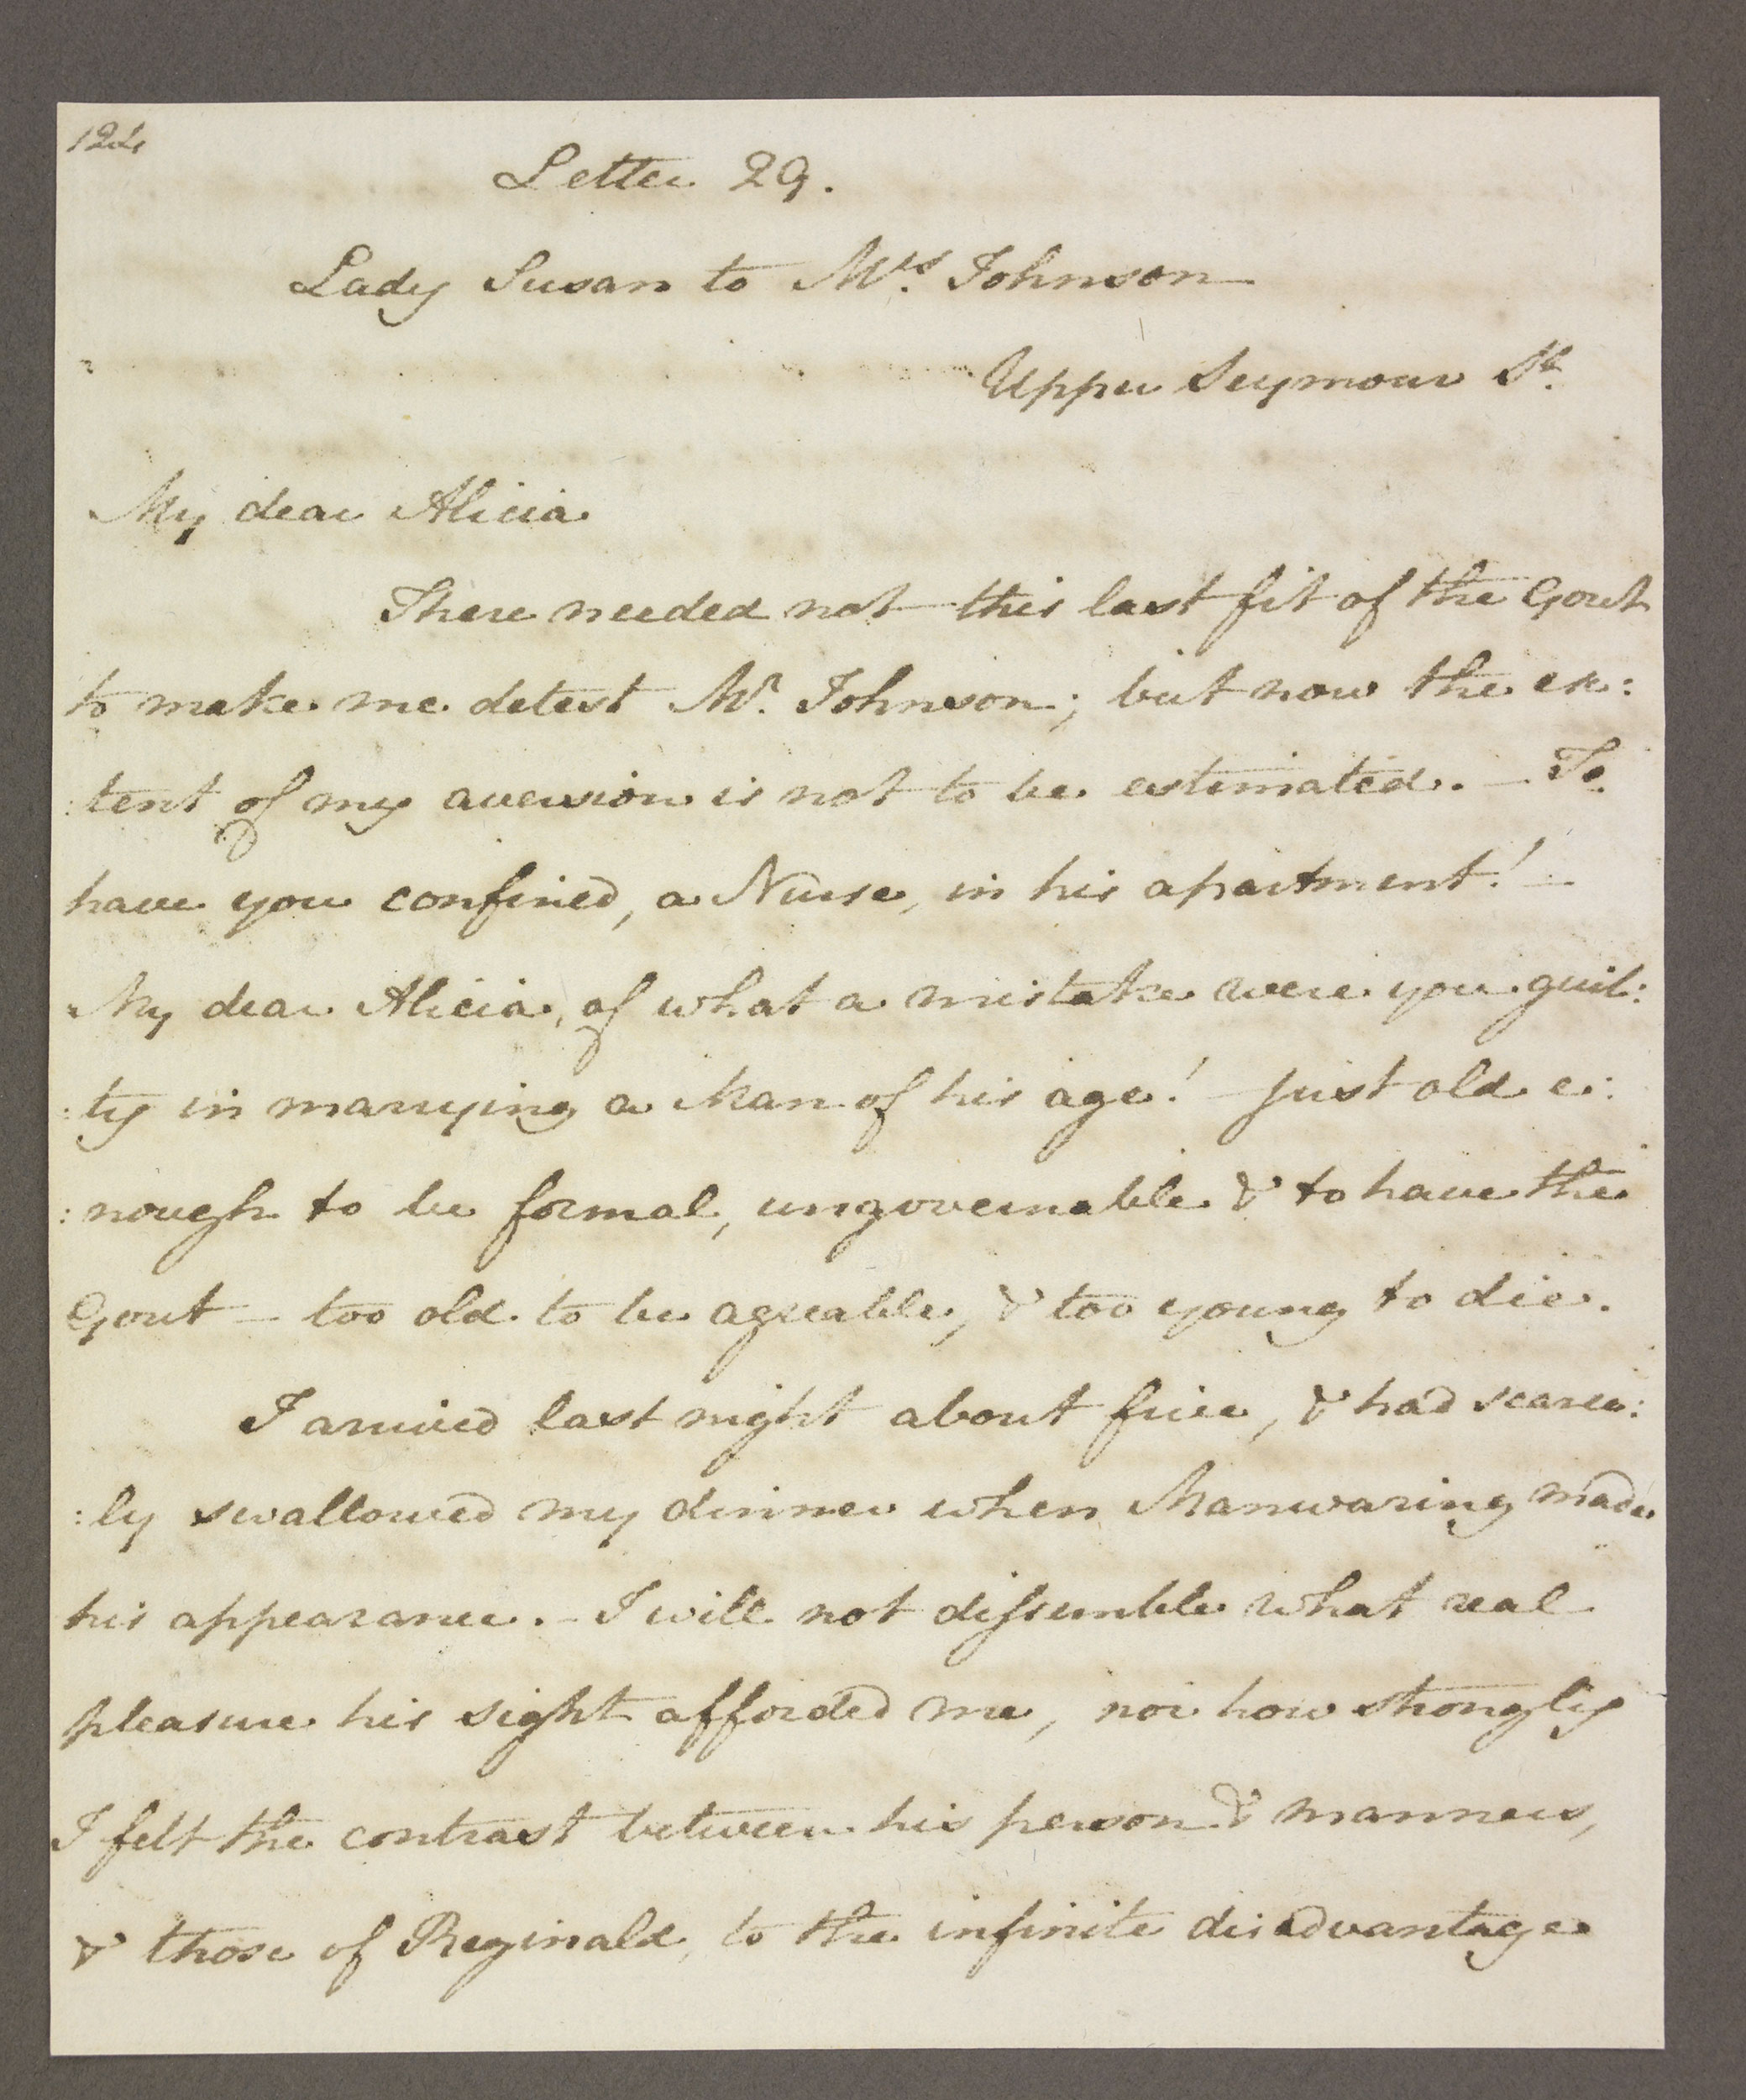 124
Letter 29.
Lady Susan to Mrs. Johnson
Upper Seymour St.
My dear Alicia
There needed not this last fit of the Gout
to make me detest Mr. Johnson; but now the ex:
:tent of my aversion is not to be estimated. — To
have you confined, a Nurse, in his apartment! —
My dear Alicia, of what a mistake were you guil:
:ty in marrying a Man of his age! — just old e:
:nough to be formal, ungovernable & to have the
Gout — too old to be agreable, & too young to die.
I arrived last night about five, & had scarce:
:ly swallowed my dinner when Manwaring made
his appearance. — I will not dissemble what real
pleasure his sight afforded me, nor how strongly
I felt the contrast between his person & manners,
& those of Reginald, to the infinite disadvantage